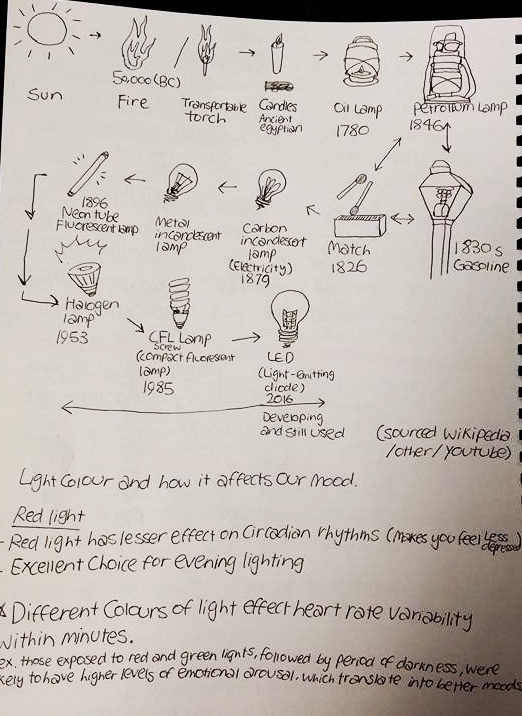 50,000(BC)
Sun
Fire
Transportable
torch
Candles
Ancient
egyptian
Oil Lamp
1780
petrolium lamp
1846
1896
Neon tube
Fluorescent lamp
Metal
incandescent
lamp
Carbon
incandescent
lamp
(Electricity)
1879
Match
1826
1830s
Gasoline
Halogen
lamp
1953
CFL Lamp
Screw
(compact fluorescent
lamp)
1985
LED
(Light-emitting
diode)
2016
Developing
and still used
(sourced Wikipedia
/other/youtube)
Light Colour and how it affects our mood.
Red light
- Red light has lesser effect on Circadian rhythms (Makes you feel less
depressed)
- Excellent Choice for evening lighting
* Different Colours of light effect heart rate variability
within minutes.
ex. those exposed to red and green lights, followed by period of darkness, were
kely to have higher levels of emotional arousal. which translate into better moods